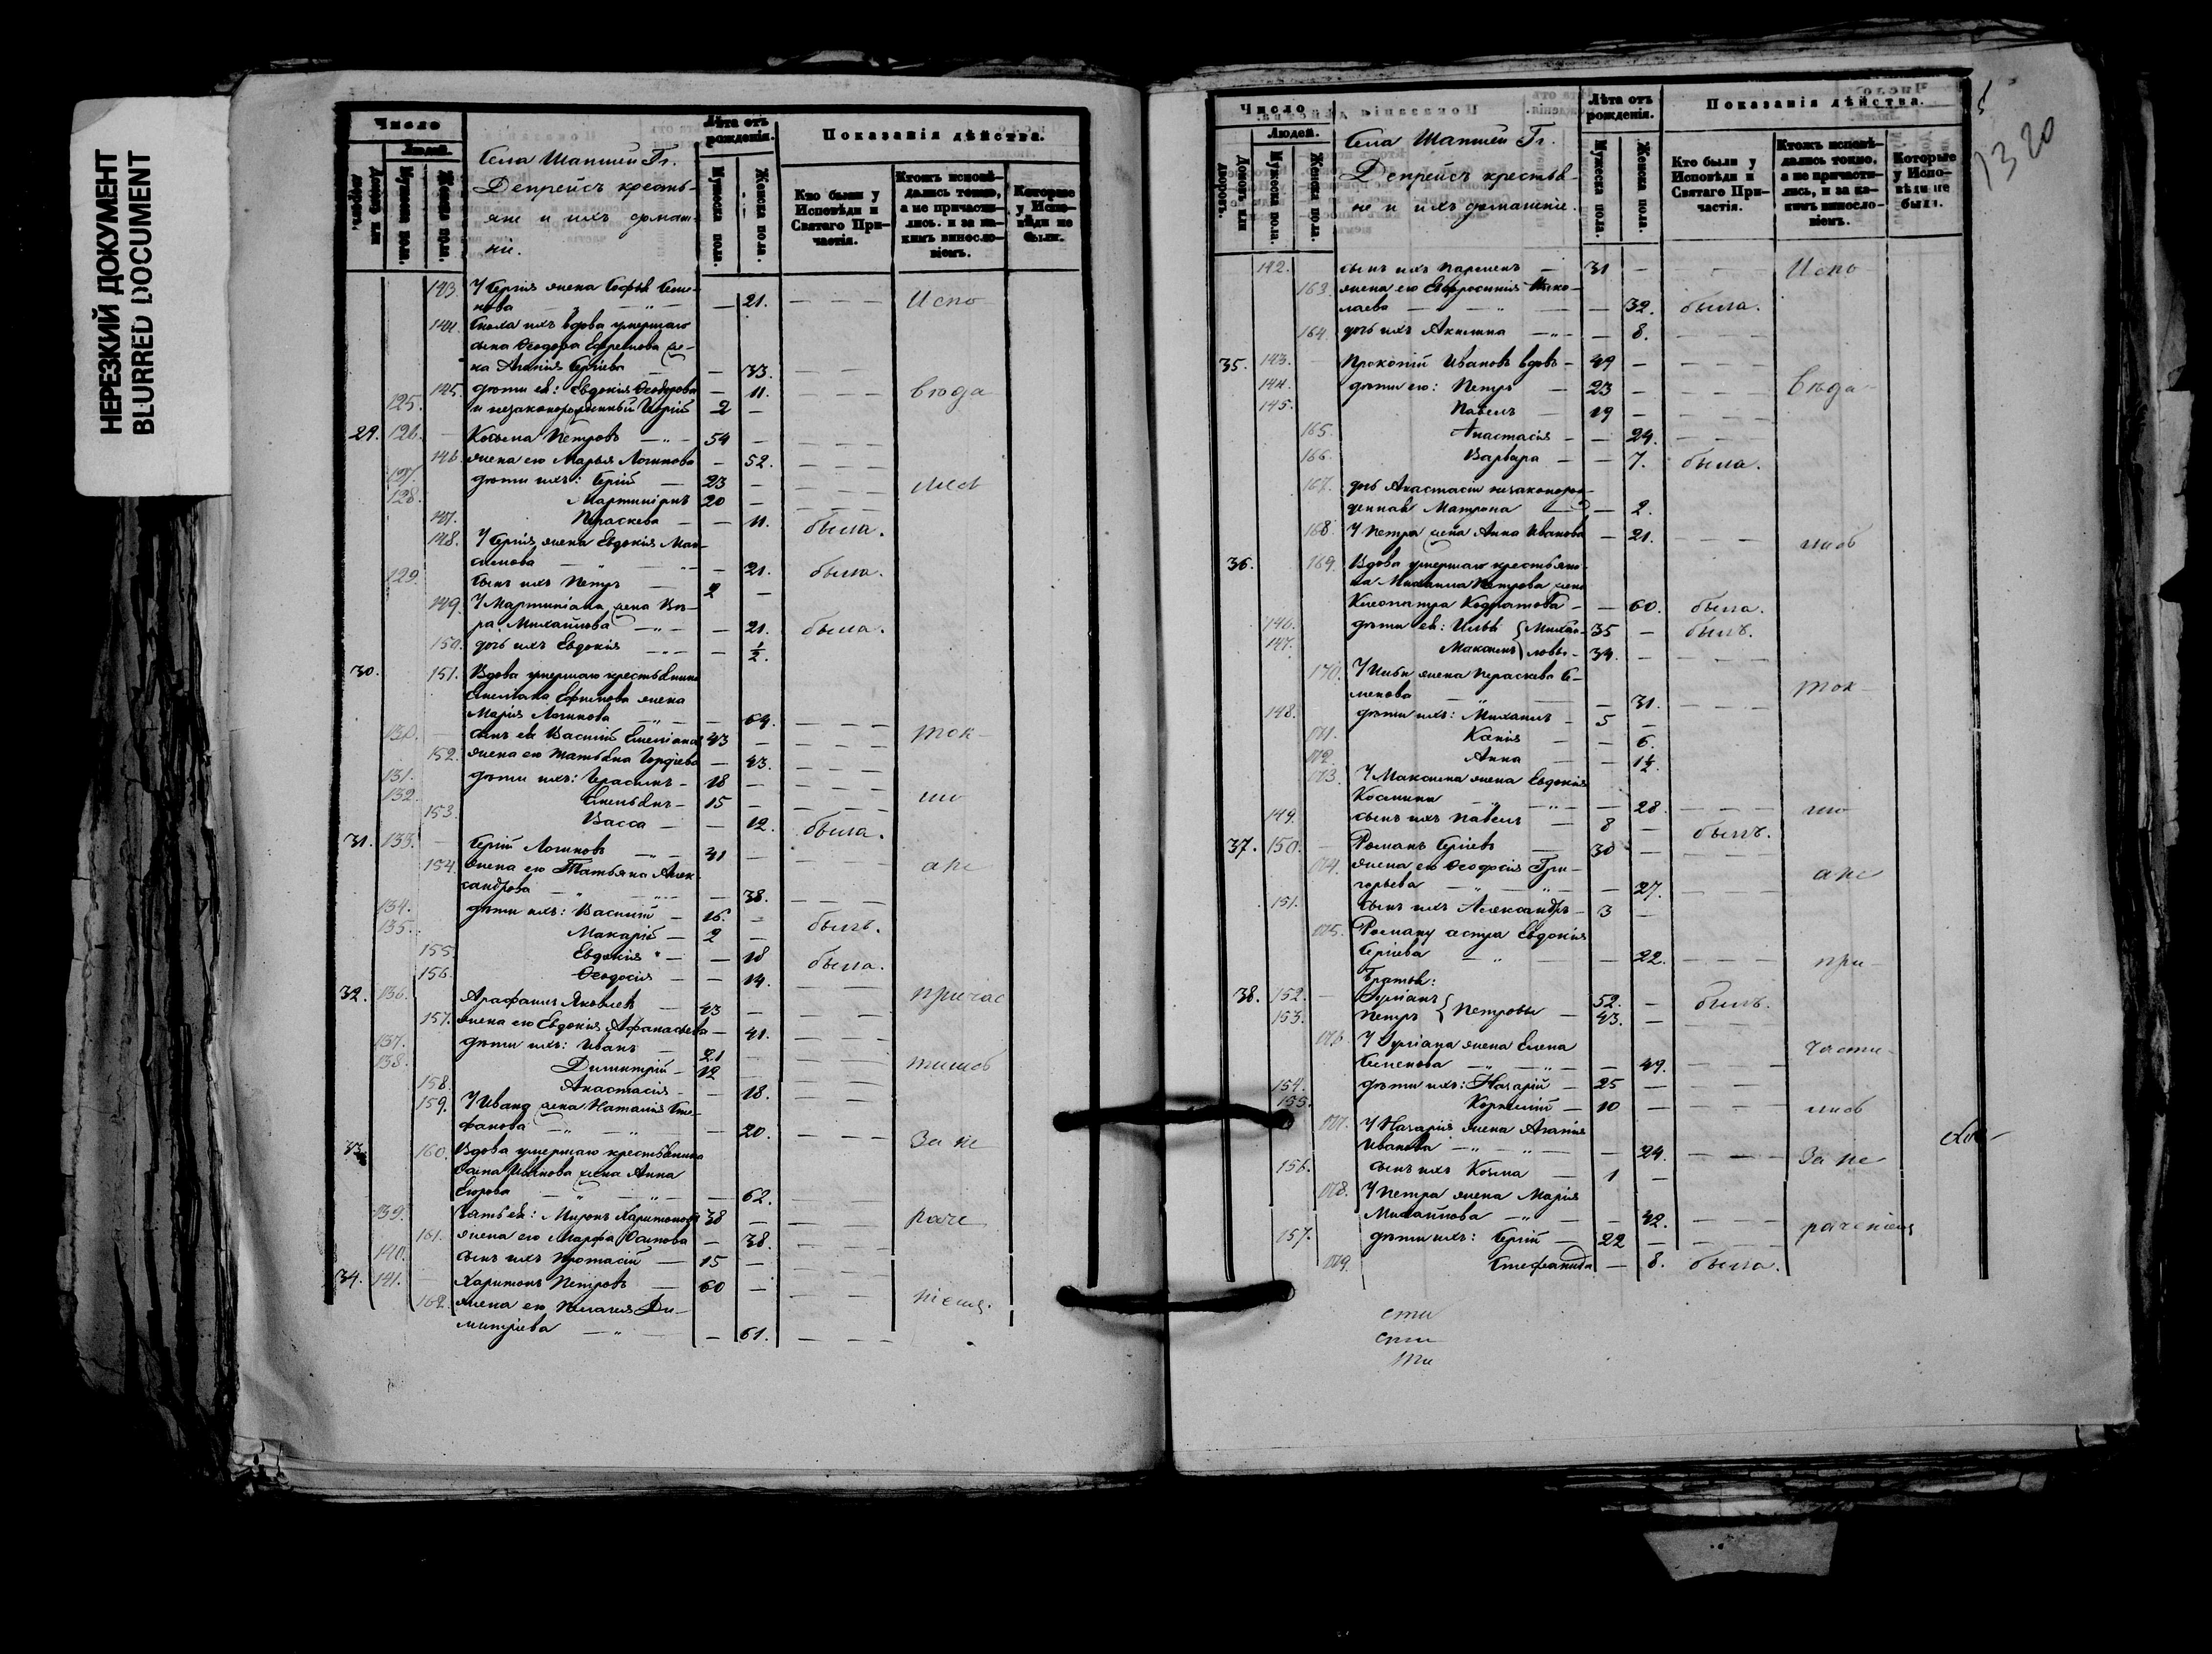 НЕРЕЗКИЙ ДОКУМЕНТ
BLURRED DOCUMENT
Число
Людей.
Домовъ или дворовъ.
Мужеска пола.
Женска пола.
Села Шапшеи Гг.
Депрейсъ кресть-
яне и ихъ домаш-
ніе.
Лѣта отъ рожденія.
Мужеска пола.
Женска пола.
Показанія дѣйства.
Кто были у Исповѣди и Святаго При-частія.
Ктожъ исповѣ-дались токмо, а не причасти-лись. и за ка-кимъ винословіемъ.
Которые у Испо-вѣди не были.
143. У Сергія жена Софья Семе-
нова — 21. Испо
144. Сноха ихъ вдова умершаго
сына Ѳеодора Ефремова же-
на Агапія Сергіева — 33.
145. дѣти ея: Евдокія Ѳеодорова — 11. вѣда
125. и незаконорожденный 2 —
29. 126. Косьма Петровъ — 54 —
146. жена его Марья Логинова — 52.
127. дѣти ихъ: Сергій — 23 —
128. Мартиніанъ 20 —
147. Параскева — 11. была.
148. У Сергія жена Евдокія Мак-
симова — 21. была.
129. сынъ ихъ Петръ — 2 —
149. У Мартиніана жена Вѣ-
ра Михайлова — 21. была.
150. дочь ихъ Евдокія — ½.
30. 151. Вдова умершаго крестьянина
Емеліана Ефимова жена
Марія Логинова — 64.
130. сынъ ея Василій Емеліановъ 43 — ток
152. жена его Татьяна Гордіева — 43.
131. дѣти ихъ: Герасимъ — 18 —
132. Емельянъ — 15 — мо
153. Васса — 12. была.
31. 133. Сергій Логиновъ — 41 —
154. жена его Татьяна Алек-
сандрова — 38. ане
134. дѣти ихъ: Василій — 16. —
135. Макарій — 2 — былъ.
155. Евдокія — 18
156. Ѳеодосія — 14. была.
32. 136. Яковлевъ — 43 — причас
157. жена его Евдокія Афанасьева — 41.
137. дѣти ихъ: Иванъ — 21 —
138. Димитрій — 12 — тились
158. Анастасія — 18.
159. У Ивана жена Наталія Сте-
фанова — 20. За не
33. 160. Вдова умершаго крестьянина
Осипа Иванова жена Анна
Егорова — 62.
139. Зять ея: Миронъ Харитоновъ 38 — раче
161. жена его Марфа Осипова — 38.
140. сынъ ихъ Протасій — 15 —
34. 141. Харитонъ Петровъ — 60 —
162. жена его Пелагія Ди-
митріева — 61. ніемъ.
13 20
Число
Людей.
Домовъ или дворовъ.
Мужеска пола.
Женска пола.
Села Шапшеи Гг.
Депрейсъ крестья-
не и ихъ домашніе.
Лѣта отъ рожденія.
Мужеска пола.
Женска пола.
Показанія дѣйства.
Кто были у Исповѣди и Святаго При-частія.
Ктожъ исповѣ-дались токмо, а не причасти-лись, и за ка-кимъ винословіемъ.
Которые у Испо-вѣди не были.
142. сынъ ихъ Парменъ — 31 — Испо
163. жена его Евфросинія Нико-
лаева — 32. была.
164. дочь ихъ Акилина — 8.
35. 143. Прокопій Ивановъ вдовъ — 49 —
144. дѣти его: Петръ — 23 — вѣда
145. Павелъ — 19 —
165. Анастасія — 24.
166. Варвара — 7. была.
167. дочь Анастасіи незаконорож-
денная Матрона — 2.
168. У Петра жена Анна Иванова — 21. лись
36. 169. Вдова умершаго крестьяни-
на Михаила Петрова жена
Клеопатра Кодратова — 60. была.
146. дѣти ея: Илья Михай- 35 — былъ.
147. Максимъ ловы — 34. —
170. У Ильи жена Параскева Се-
менова — 31. ток
148. дѣти ихъ: Михаилъ — 5 —
171. Ксенія — 6.
172. Анна — 1½.
173. У Максима жена Евдокія
Косьмина — 28. мо
149. сынъ ихъ Павелъ — 8 — былъ.
37. 150. Романъ Сергіевъ — 30 —
174. жена его Ѳеодосія Гри-
горьева — 27. ане
151. сынъ ихъ Александръ — 3 —
175. Роману сестра Евдокія
Сергіева — 22. при
Братья:
38. 152. Гуріанъ 52. — былъ.
153. Петръ Петровы — 43. —
176. У Гуріана жена Елена
Семенова — 49. части
154. дѣти ихъ: Назарій — 25 —
155. Корнилій — 10 — лись
177. У Назарія жена Агапія
Иванова — 24. За не
156. сынъ ихъ Козма — 1 —
178. У Петра жена Марія
Михайлова — 42. раченіемъ
157. дѣти ихъ: Сергій — 22 —
179. Стефанида — 8. была.
сти
сти
ти